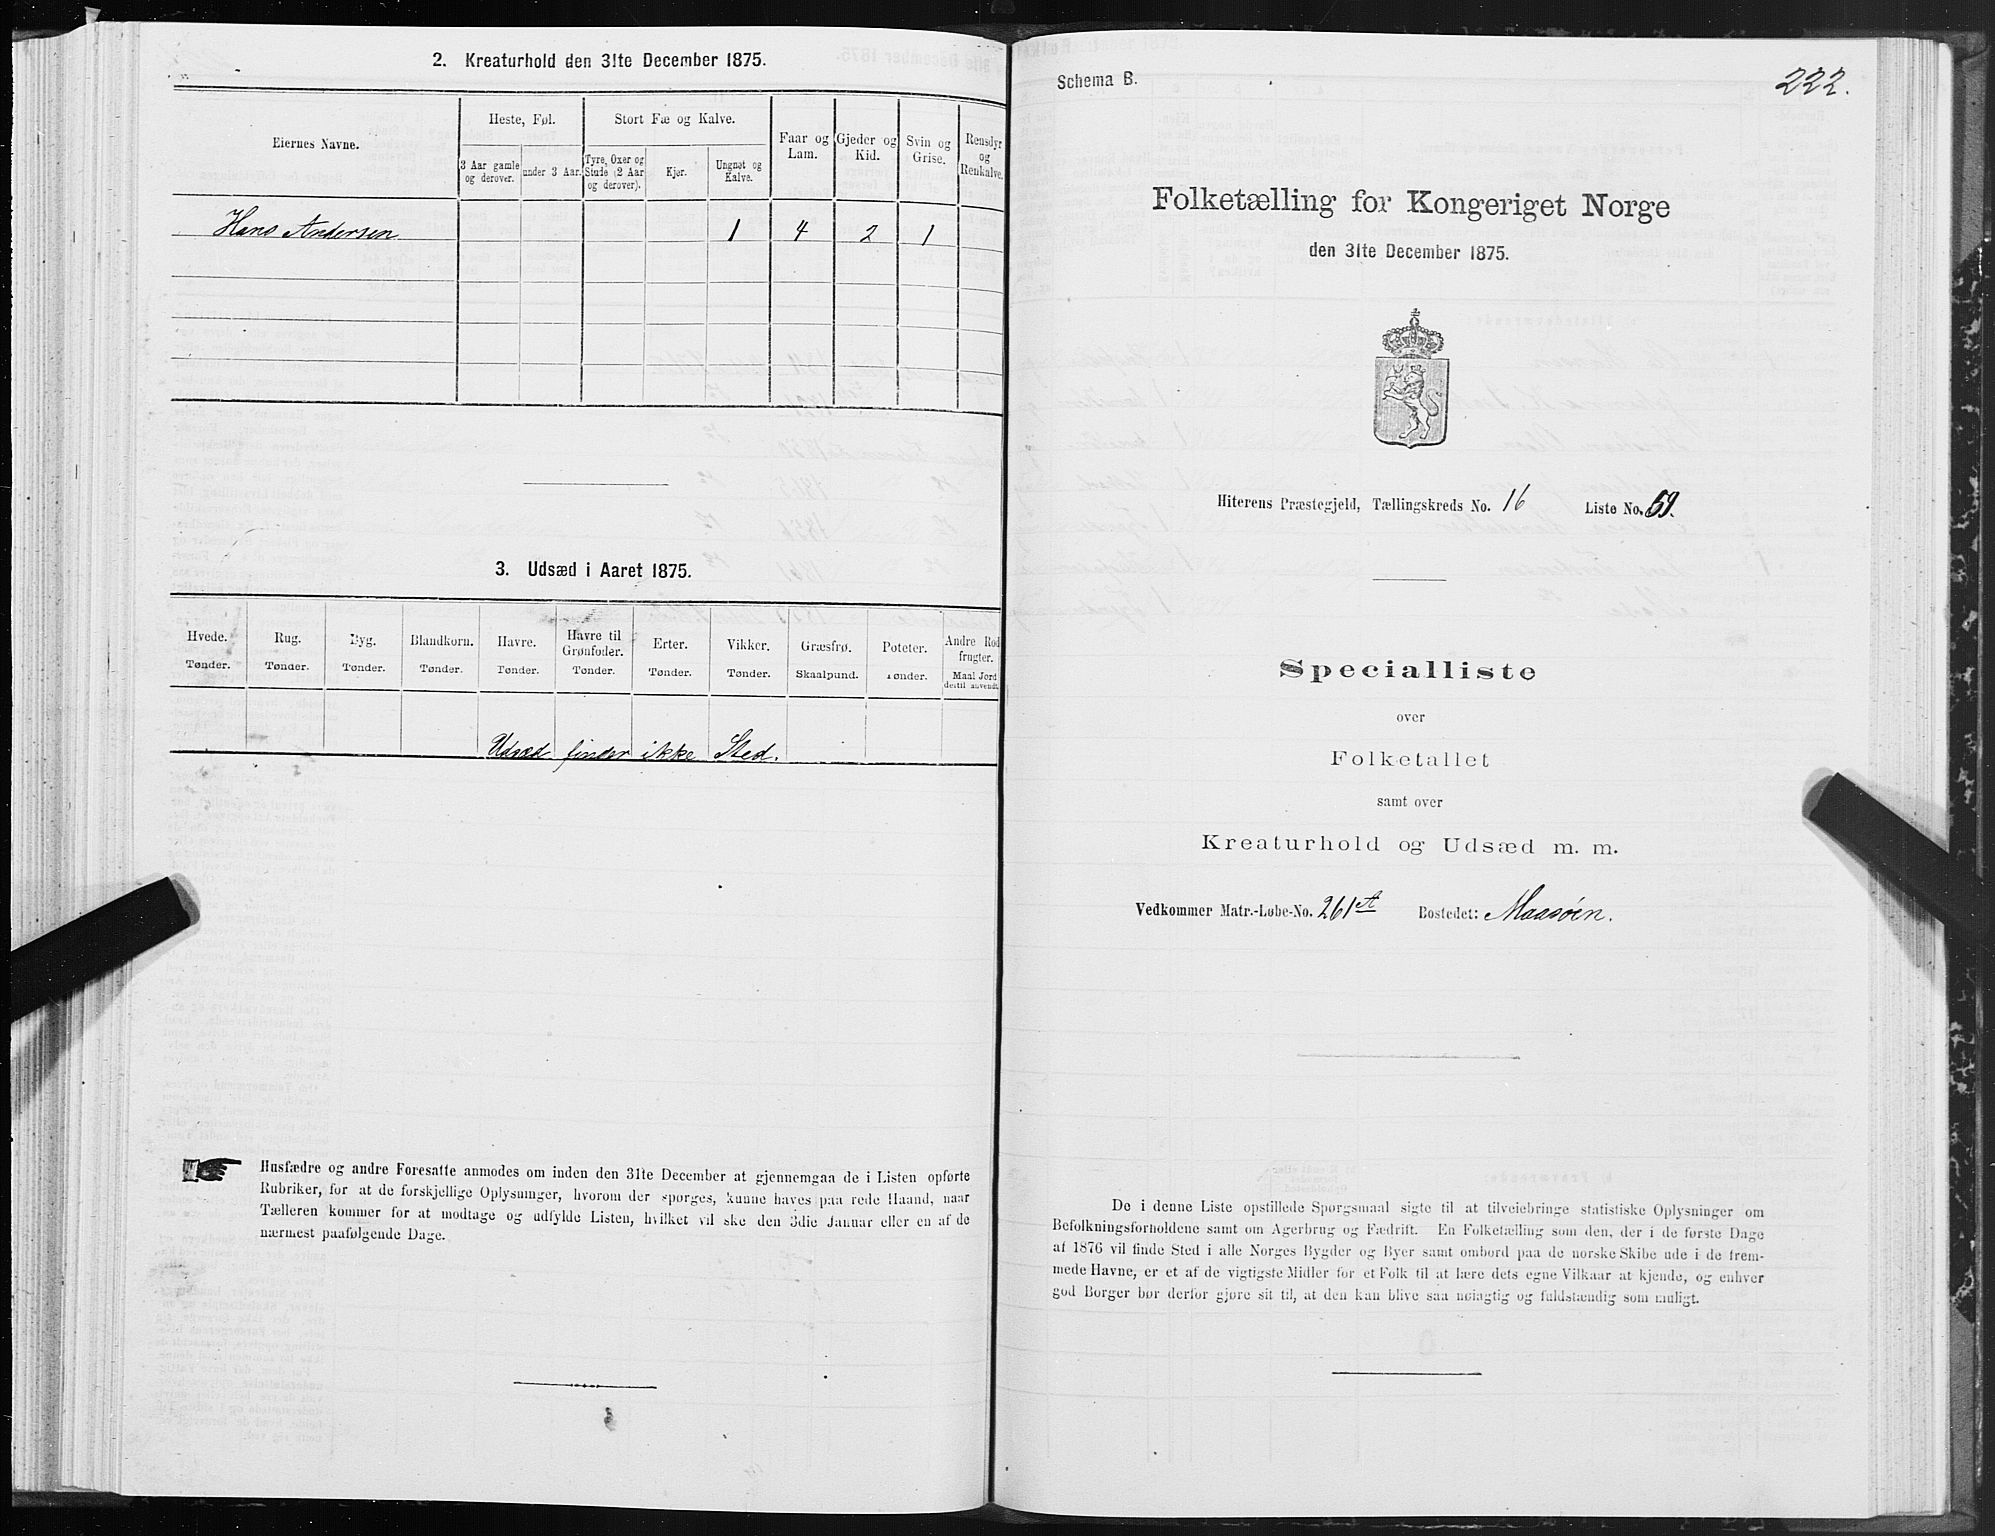 2. Kreaturhold den 31te December 1875.
Eiernes Navne.
Heste, Føl.
Stort Fæ og Kalve.
Faar og Lam.
Gjeder og Kid.
Svin og Grise.
Rensdyr og Renkalve.
3 Aar gamle og derover.
under 3 Aar.
Tyre, Oxer og Stude (2 Aar og derover).
Kjør.
Ungnøt og Kalve.
Hans Andersen 1 4 2 1
3. Udsæd i Aaret 1875.
Hvede. Rug. Byg. Blandkorn. Havre. Havre til Grønfoder. Erter. Vikker. Græsfrø. Poteter. Andre Rodfrugter.
Tønder. Tønder. Tønder. Tønder. Tønder. Tønder. Tønder. Tønder. Skaalpund. Tønder. Maal Jord dertil anvendt.
Udsæd finder ikke Sted.
Husfædre og andre Foresatte anmodes om inden den 31te December at gjennemgaa de i Listen opførte
Rubriker, for at de forskjellige Oplysninger, hvorom der spørges, kunne haves paa rede Haand, naar
Tælleren kommer for at modtage og udfylde Listen, hvilket vil ske den 3die Januar eller en af de
nærmest paafølgende Dage.
Schema B.
222.
Folketælling for Kongeriget Norge
den 31te December 1875.
Hiterens Præstegjeld, Tællingskreds No. 16 Liste No. 59.
Specialliste
over
Folketallet
samt over
Kreaturhold og Udsæd m. m.
Vedkommer Matr.-Løbe-No. 261 A Bostedet: Maasøen.
De i denne Liste opstillede Spørgsmaal sigte til at tilveiebringe statistiske Oplysninger om
Befolkningsforholdene samt om Agerbrug og Fædrift. En Folketælling som den, der i de første Dage
af 1876 vil finde Sted i alle Norges Bygder og Byer samt ombord paa de norske Skibe ude i de frem-
mede Havne, er et af de vigtigste Midler for et Folk til at lære dets egne Vilkaar at kjende, og enhver
god Borger bør derfor gjøre sit til, at den kan blive saa nøiagtig og fuldstændig som muligt.